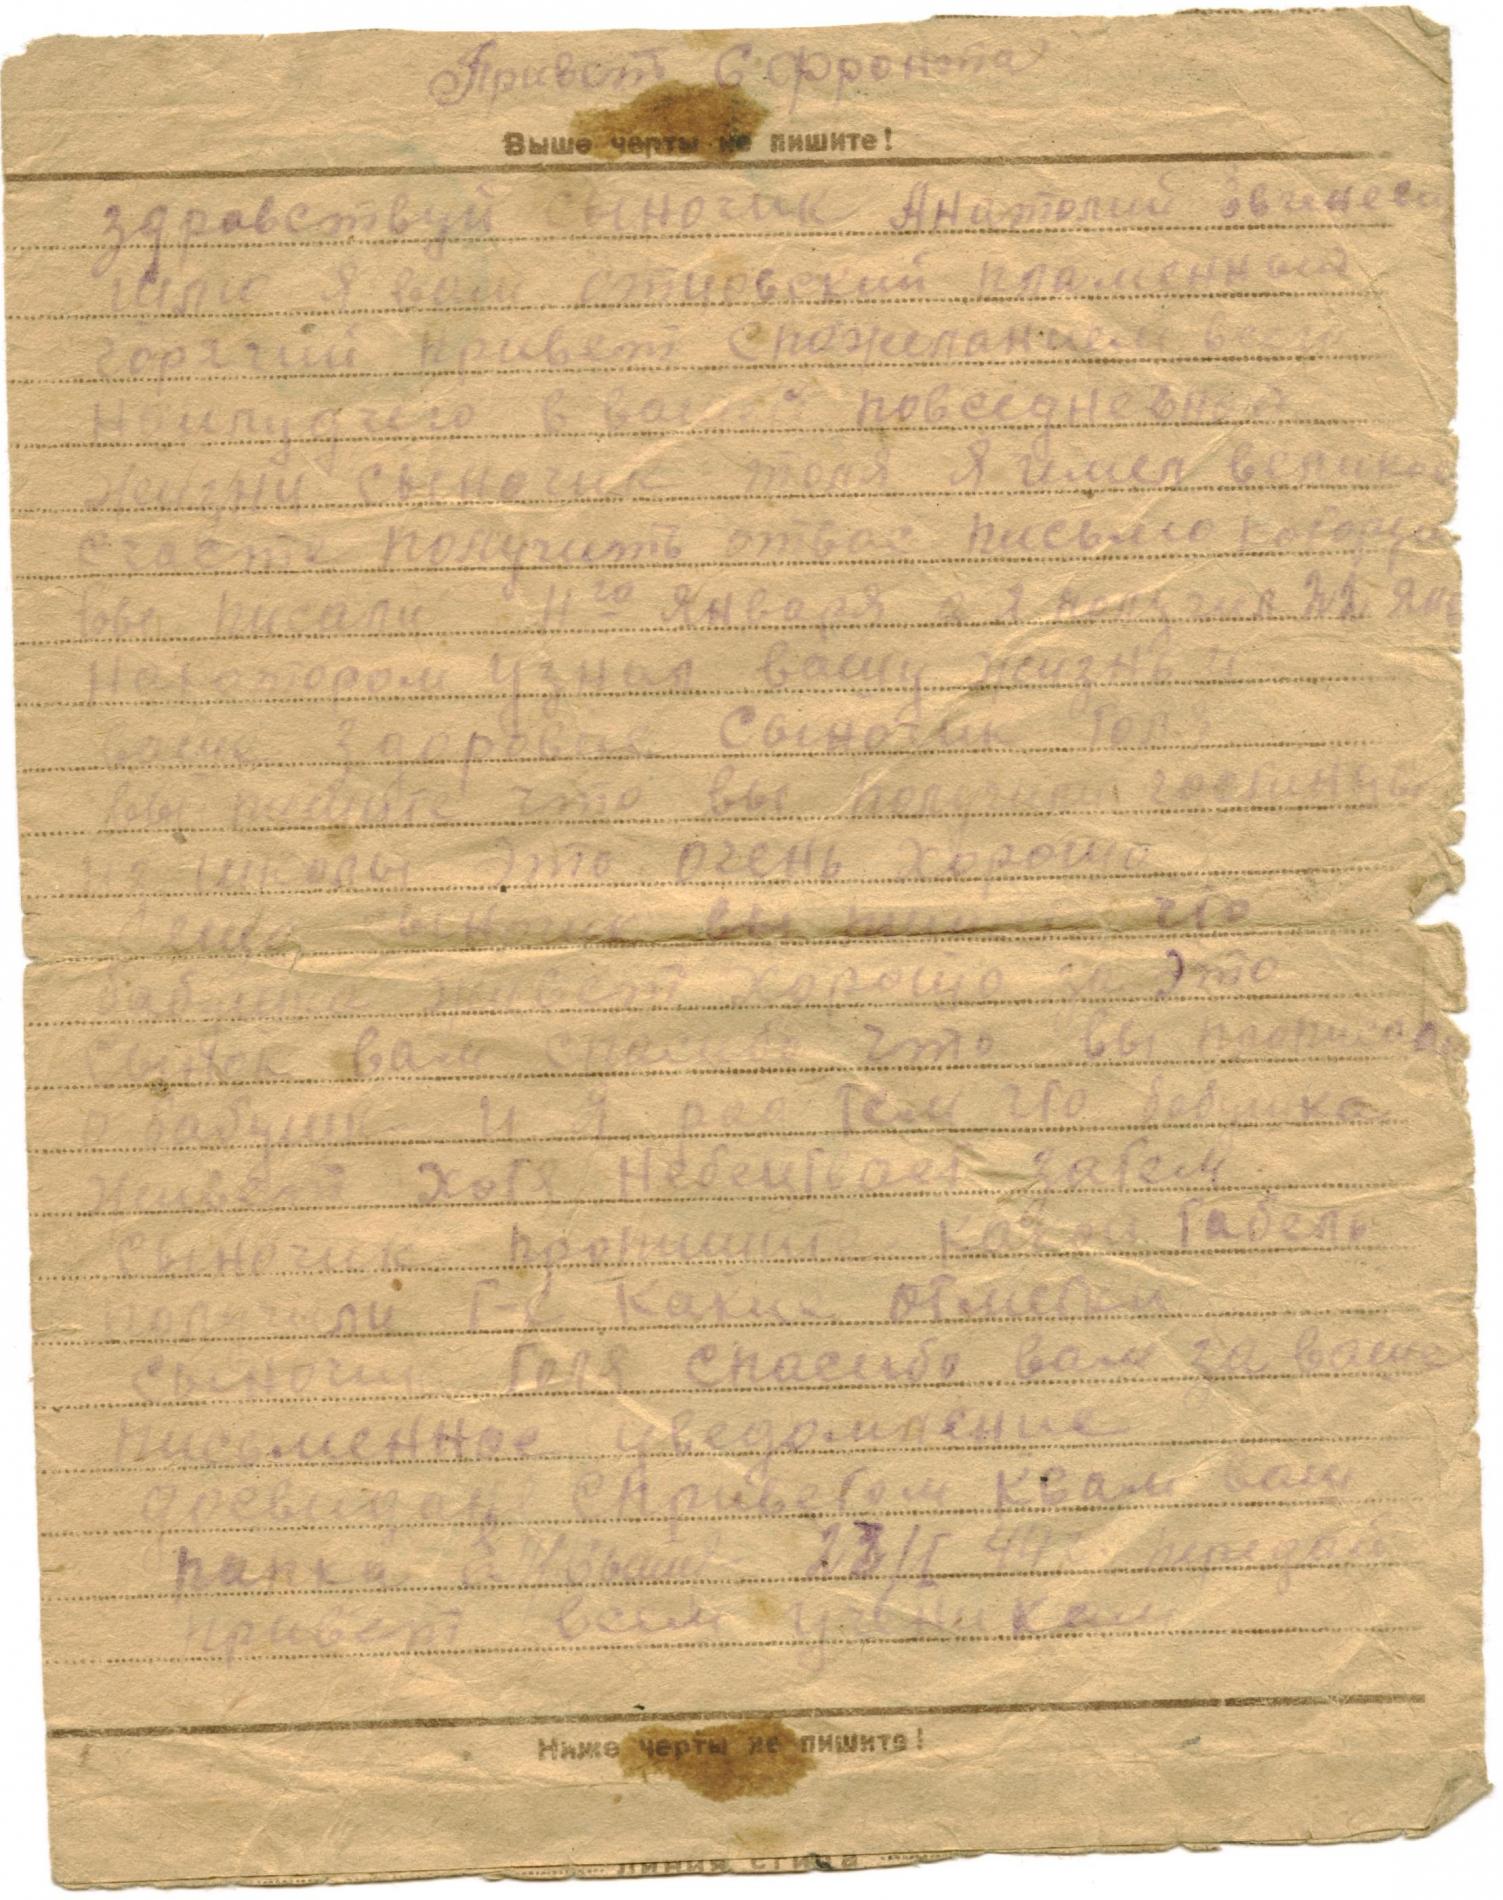 Привет С фронта
Выше черты не пишите!
здравствуй сыночик Анатолий
шлю я вам отцовский пламенный
горячий привет спожеланием
наилудчего в вашей повседневной
жизни сыночик толя я имел великое
счасте получить отвас письмо
вы писали 11го января а я получил 22 янв
накотором узнал вашу жизнь и
здоровие Сыночик Толя
вы пишите что вы
из школы это очень хорошо
сыночик вы что
бабушка живет хорошо за это
сынок вам спасибо что вы прописали
о бабушк и я рад тем что бабушка
живет хотя затем
Сыночик пропишит какой табель
получили т-е какие отметки
сыночик Толя спасибо вам за ваше
письменное уведомление
досвидан сприветом квам ваш
папка 23/I 44 передай
привет всем ученикам
Ниже черты не пишите!
линия сгиба